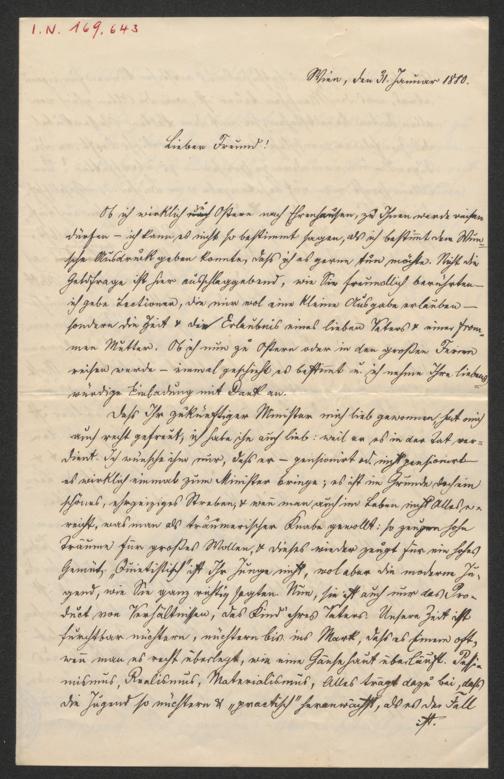 I.N. 169.643
Wien, den 31. Januar 1880.
Lieber Freund!
Ob ich wirklich Ostern nach Ehrenhausen, zu Ihnen werde reisen
dürfen – ich kann es nicht so bestimmt sagen, als ich bestimmt den Wun-
sche Ausdruck geben konnte, dass ich es gerne tun möchte. Nicht die
Geldfrage ist hier ausschlaggebend, wie Sie freundlich berührten –
ich gebe Lectionen, die mir wol eine kleine Ausgabe erlauben –
sondern die Zeit & die Erlaubnis eines lieben Vaters & einer from-
men Mutter. Ob ich nun zu Ostern oder in den großen Ferien
reisen werde – einmal geschieht es bestimmt u. ich nehme Ihre liebens-
würdige Einladung mit Dank an.
Dass Ihr zukünftiger Minister mich lieb gewonnen, hat mich
auch recht gefreut; ich habe ihn auch lieb: weil er es in der Tat ver-
dient. Ich wünsche ihm nur, dass er – pensionirt od. nicht pensionirt –
es wirklich einmal zum Minister bringe; es ist im Grunde doch ein
schönes, ehrgeiziges Streben, & wenn man auch im Leben nicht Alles er-
reicht, was man als träumerischer Knabe gewollt: so zeugen hohe
Träume für großes Wollen, & dieses wieder zeugt für ein hohes
Gemüt. „Quietistisch“ ist Ihr Junge nicht, wol aber die moderne Ju-
gend, wie Sie ganz richtig sagten. Nun, sie ist auch nur das Pro-
duct von Verhältnissen, das Kind ihres Vaters. Unsere Zeit ist
furchtbar nüchtern, nüchtern bis ins Mark, dass es Einem oft,
wenn man es recht überlegt, wie eine Gänsehaut überläuft. Pessi-
mismus, Realismus, Materialismus, Alles trägt dazu bei, dass
die Jugend so nüchtern & „practisch“ heranwächst, als es der Fall
ist.